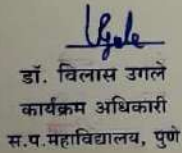 डॉ. विलास उगले
कार्यक्रम अधिकारी
स.प.महाविद्यालय, पुणे